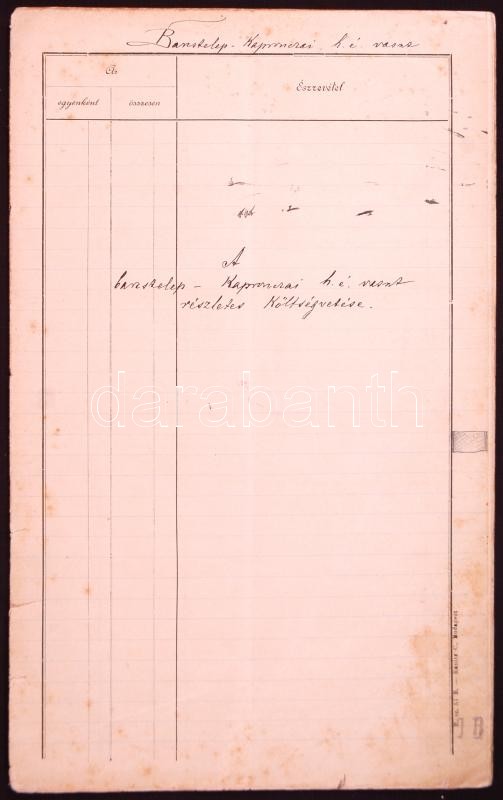 Banstelep - Kapronczai h. é. vasut
Ár
egyenként összesen
Észrevétel
A
banstelep - Kapronczai h. é. vasut
részletes Költségvetése.
darabanth
Budapest